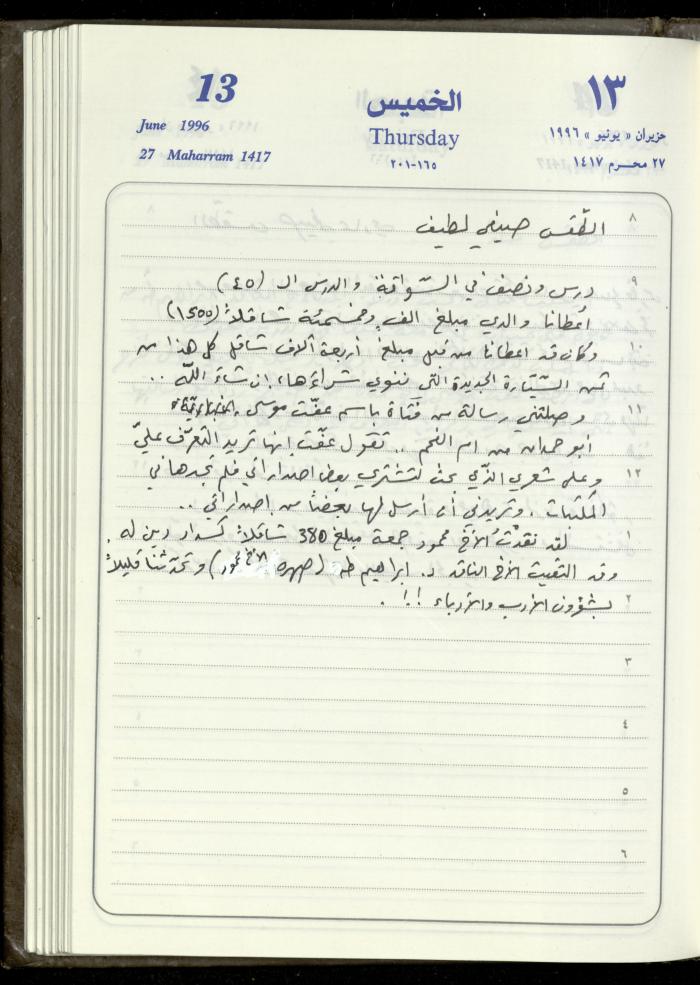 13
June 1996
27 Maharram 1417
الخميس
Thursday
٢٠١-١٦٥
١٣
حزيران « يونيو » ١٩٩٦
٢٧ محرم ١٤١٧
٨ الطّقس صيفي لطيف
٩ درس ونصف في السّواقة والدرس الـ (٤٥)
أعطانا والدي مبلغ الف وخمسمئة شاقلاً (١٥٠٠)
١٠ وكان قد اعطانا من قبل مبلغ أربعة آلاف شاقل كل هذا من
ثمن السّيّارة الجديدة التّي ننوي شراءَها، إن شاءَ اللّه ..
١١ وصلتني رسالة من فتاة باسم عفّت موسى
ابو حمدان من ام الفحم .. تقول عفّت إنها تريد التعرّف عليّ
١٢ وعلى شعري الذّي بحث لتشتري بعض اصداراتي فلم تجدها في
المكتبات . وتريدني أن أرسل لها بعضاً من إصداراتي ..
١ لقد نقدْتُ الأخ محمود جمعة مبلغ 380 شاقلاً كسداد دين له .
وقد التقيت الأخ الناقد د. ابراهيم طه (صهره الأخ محمود) وتحدّثنا قليلاً
٢ بشؤون الأدب والأدباء !!.
٣
٤
٥
٦